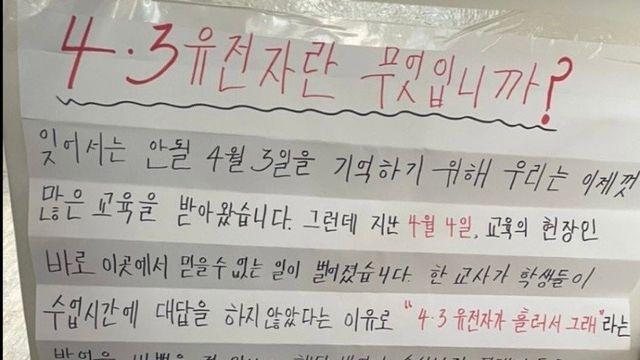 4·3유전자란 무엇입니까?
잊어서는 안될 4월 3일을 기억하기 위해 우리는 이제껏
많은 교육을 받아왔습니다. 그런데 지난 4월 4일, 교육의 현장인
바로 이곳에서 믿을수 없는 일이 벌어졌습니다. 한 교사가 학생들이
수업시간에 대답을 하지 않았다는 이유로 "4·3 유전자가 흘러서 그래"라는